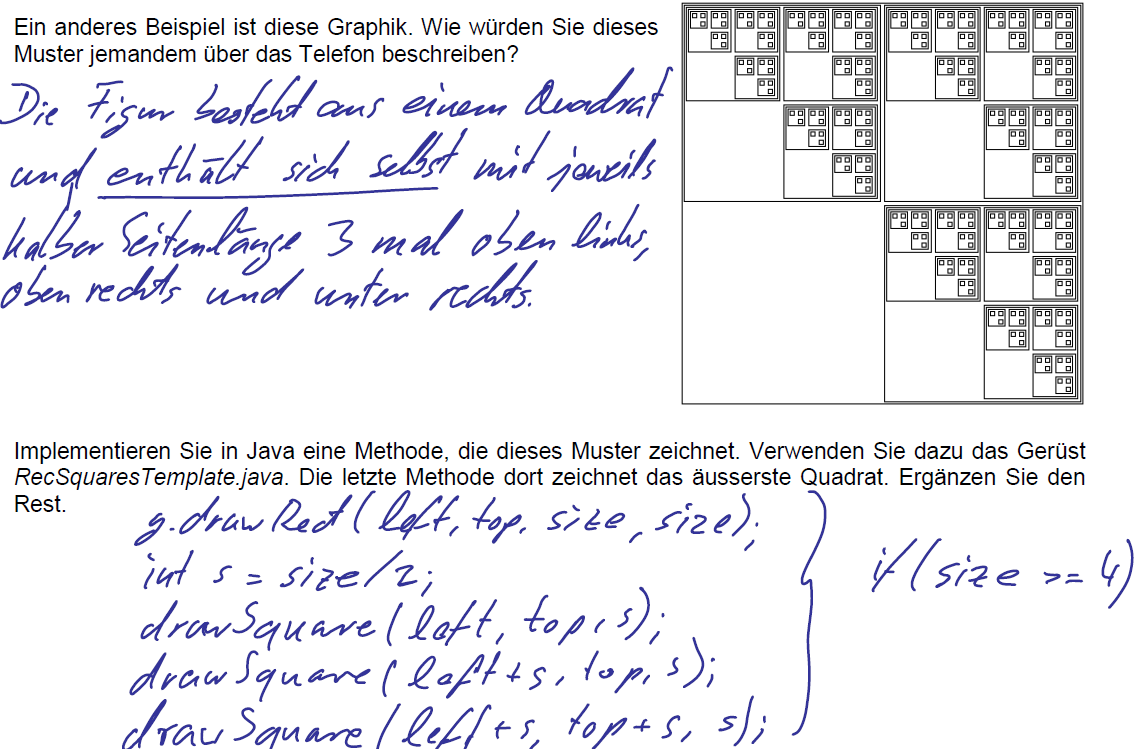 Ein anderes Beispiel ist diese Graphik. Wie würden Sie dieses
Muster jemandem über das Telefon beschreiben?
Die Figur besteht aus einem Quadrat
und enthält sich selbst mit jeweils
halber Seitenlänge 3 mal oben links,
oben rechts und unter rechts.
Implementieren Sie in Java eine Methode, die dieses Muster zeichnet. Verwenden Sie dazu das Gerüst
RecSquaresTemplate.java. Die letzte Methode dort zeichnet das äusserste Quadrat. Ergänzen Sie den
Rest.
g.drawRect(left, top, size, size);
int s = size/2;
drawSquare(left, top, s);
drawSquare(left+s, top, s);
drawSquare(left+s, top+s, s);
if (size >= 4)